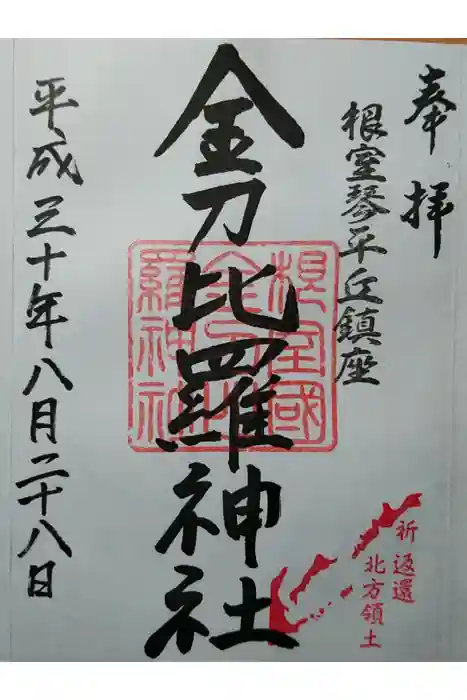 奉拝
根室琴平丘鎮座
金刀比羅神社
根室國
金刀比
羅神社
平成三十年八月二十八日
祈返還
北方領土